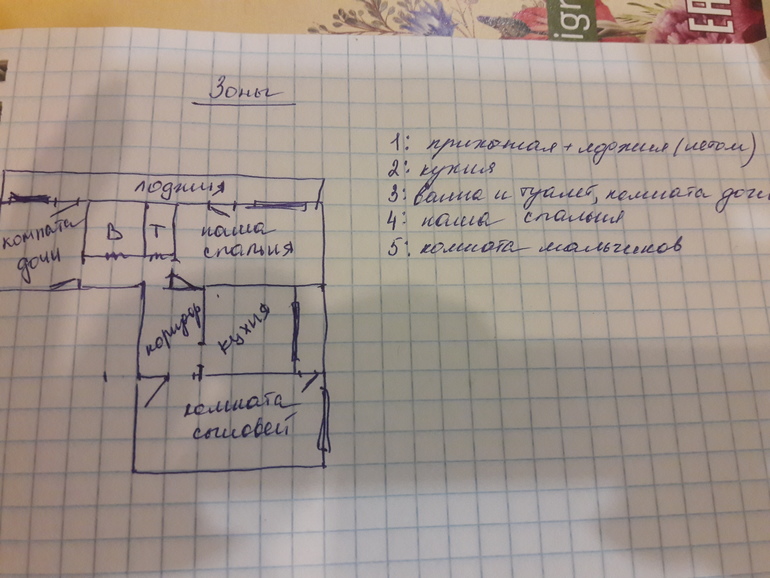 ign
Зоны
1: прихожая + лоджия (летом)
2: кухня
3: ванна и туалет, комната дочи
4: наша спальня
5: комната мальчиков
лоджия
комната
дочи
В
Т
наша
спальня
коридор
кухня
комната
сыновей